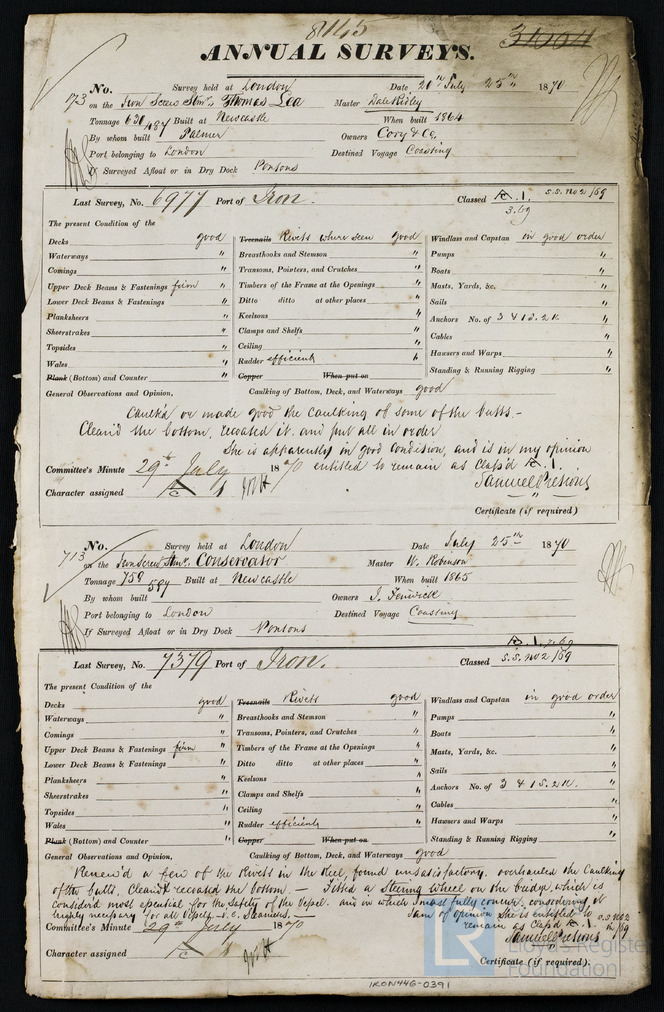 8145
ANNUAL SURVEYS.
No. 713 Survey held at London Date 20th July 25th 1870
on the Iron Screw Stmr. Thomas Lea Master Dale Ridley
Tonnage 630 487 Built at Newcastle When built 1864
By whom built Palmer Owners Cory & Co,
Port belonging to London Destined Voyage Coasting
If Surveyed Afloat or in Dry Dock Pontons
Last Survey, No. 6977 Port of Iron. Classed A.1. S.S. No 2/69
3.69
The present Condition of the
Decks good Treenails Rivets where seen good Windlass and Capstan in good order
Waterways " Breasthooks and Stemson " Pumps "
Comings " Transoms, Pointers, and Crutches " Boats "
Upper Deck Beams & Fastenings firm " Timbers of the Frame at the Openings " Masts, Yards, &c. "
Lower Deck Beams & Fastenings " Ditto ditto at other places " Sails "
Planksheers " Keelsons " Anchors No. of 3 & 1 S. 2 K. "
Sheerstrakes " Clamps and Shelfs " Cables "
Topsides " Ceiling " Hausers and Warps "
Wales " Rudder efficient " Standing & Running Rigging "
Plank (Bottom) and Counter " Copper When put on
General Observations and Opinion, Caulking of Bottom, Deck, and Waterways good
Caulk'd or made good the caulking of some of the butts.-
Clean'd the bottom, recoated it and put all in order
She is apparently in good condition, and is in my opinion
Committee's Minute 29th July 1870 entitled to remain as Class'd A.1.
Character assigned A 1
Samuel Pretious
Certificate (if required)
No. 713 Survey held at London Date July 25th 1870
on the Iron Screw Stmr. Conservator Master W. Robinson
Tonnage 759 589 Built at Newcastle When built 1865
By whom built Owners J. Fenwick
Port belonging to London Destined Voyage Coasting
If Surveyed Afloat or in Dry Dock Pontons
A.1. 3.69
Last Survey, No. 7379 Port of Iron. Classed S.S. No 2/69
The present Condition of the
Decks good Treenails Rivets good Windlass and Capstan in good order
Waterways " Breasthooks and Stemson " Pumps "
Comings " Transoms, Pointers, and Crutches " Boats "
Upper Deck Beams & Fastenings firm " Timbers of the Frame at the Openings " Masts, Yards, &c. "
Lower Deck Beams & Fastenings " Ditto ditto at other places " Sails "
Planksheers " Keelsons " Anchors No. of 3 & 1 S. 2 K. "
Sheerstrakes " Clamps and Shelfs " Cables "
Topsides " Ceiling " Hausers and Warps "
Wales " Rudder efficient " Standing & Running Rigging "
Plank (Bottom) and Counter " Copper When put on
General Observations and Opinion, Caulking of Bottom, Deck, and Waterways good
Renew'd a few of the Rivets in the Keel, found unsatisfactory. overhauled the Caulking
of the butts, Clean'd & recoated the bottom. - Fitted a Steering Wheel on the bridge, which is
consider'd most essential for the safety of the Vessel. and in which I most fully concur. considering it
highly necessary for all Vessels - i.e. Steamers. - I am of opinion she is entitled to
Committee's Minute 29th July 1870 remain as Class'd A.1. S.S. No 2 /69
Character assigned A 1
Samuel Pretious
Certificate (if required).
LR Lloyd's Register Foundation
IRON446-0391